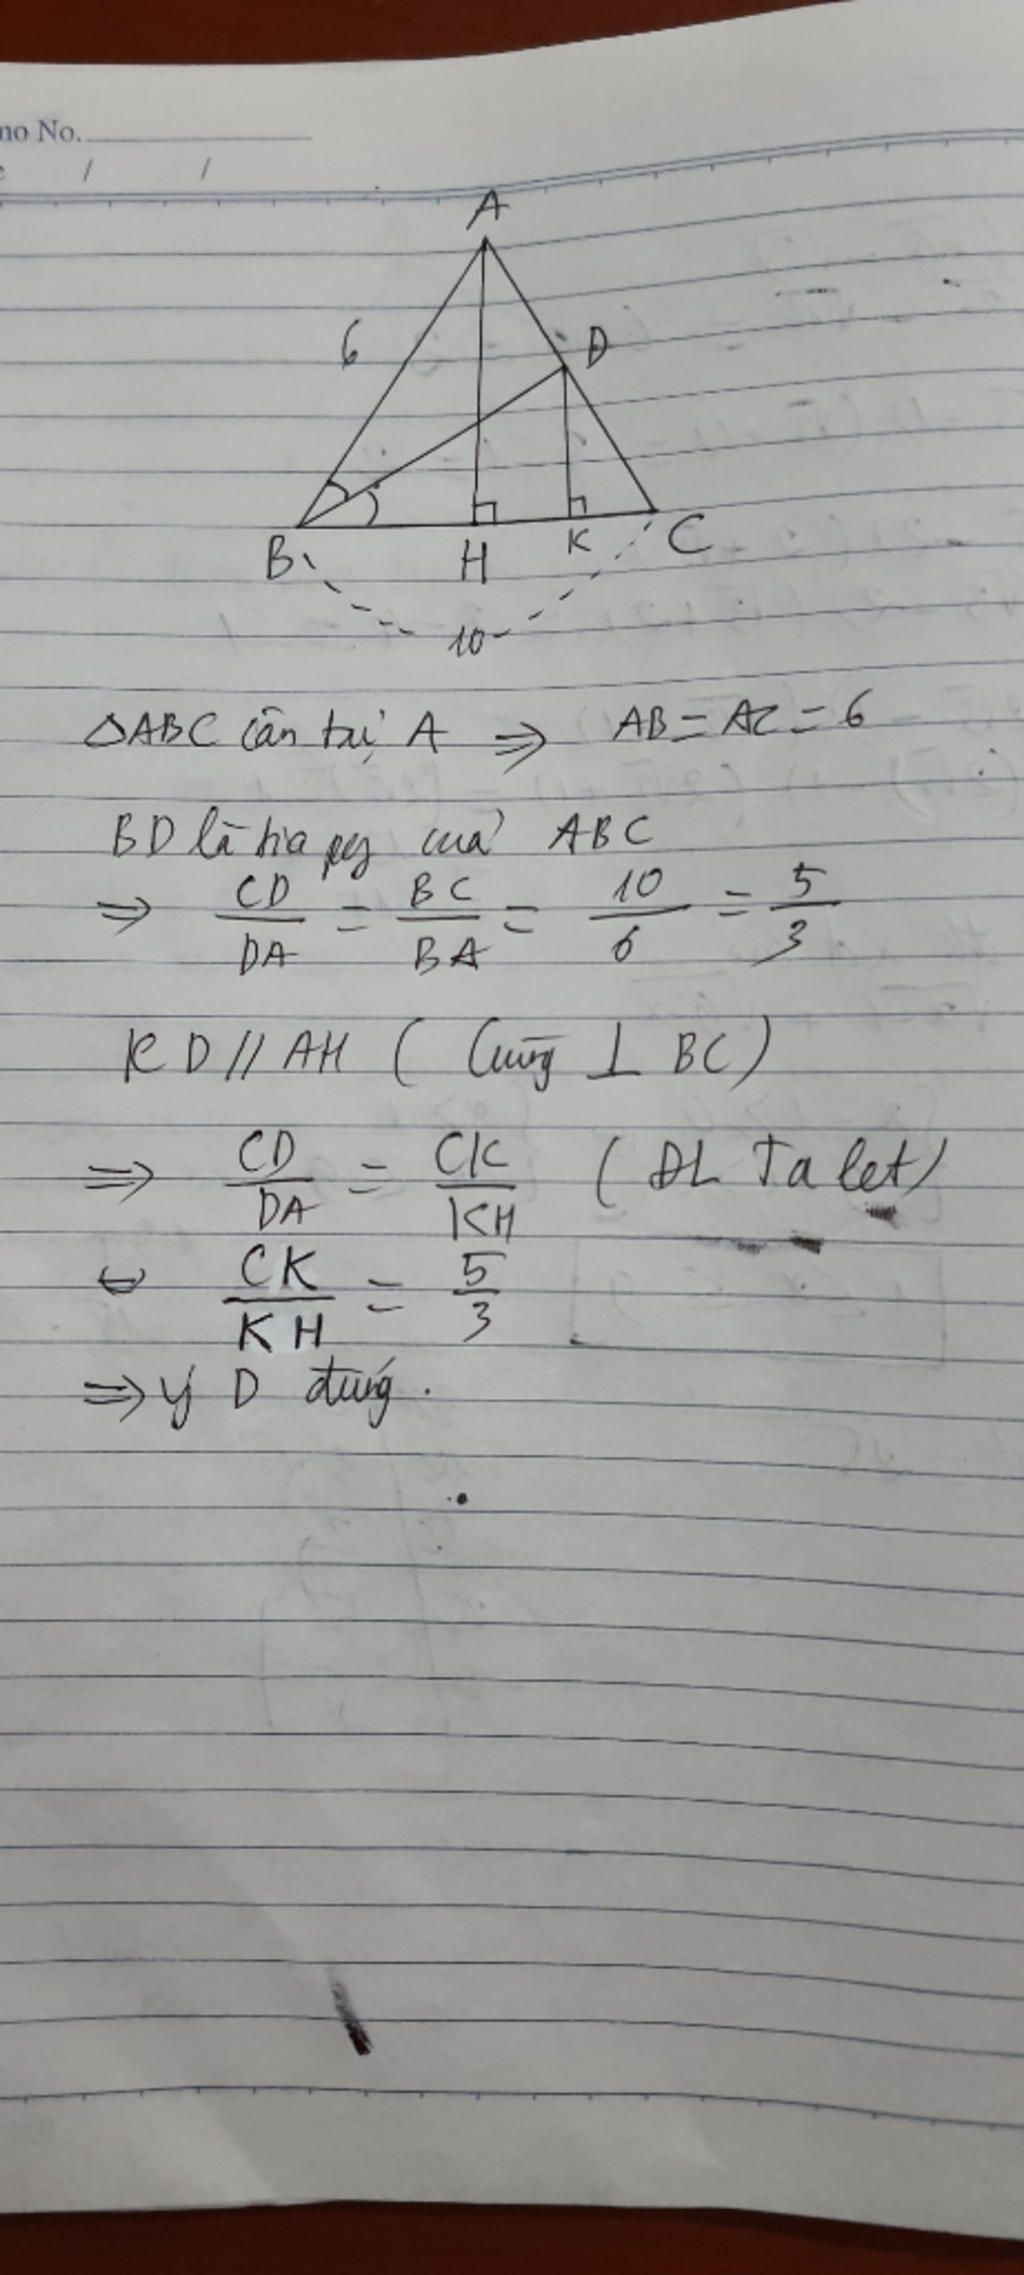 no No.
/ /
A
6
D
B H K C
10
△ABC cân tại A ⇒ AB = AC = 6
BD là tia pg của ABC
⇒ CD/DA = BC/BA = 10/6 = 5/3
KD // AH ( Cùng ⊥ BC )
⇒ CD/DA = CK/KH ( ĐL Ta let )
⇔ CK/KH = 5/3
⇒ ý D đúng.